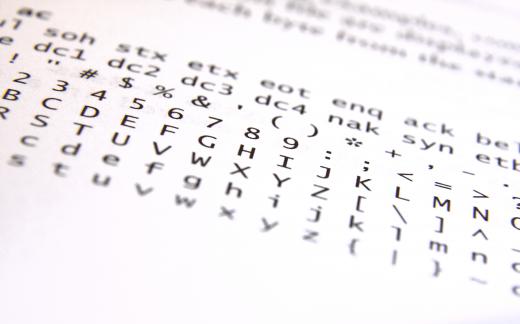 each byte from the
soh stx etx eot enq ack bel
dc1 dc2 dc3 dc4 nak syn etb
! " # $ % & ' ( ) * + , - .
2 3 4 5 6 7 8 9 : ; < = > ?
B C D E F G H I J K L M N O
R S T U V W X Y Z [ \ ] ^
c d e f g h i j k l m n o
s t u v w x y z { | } ~